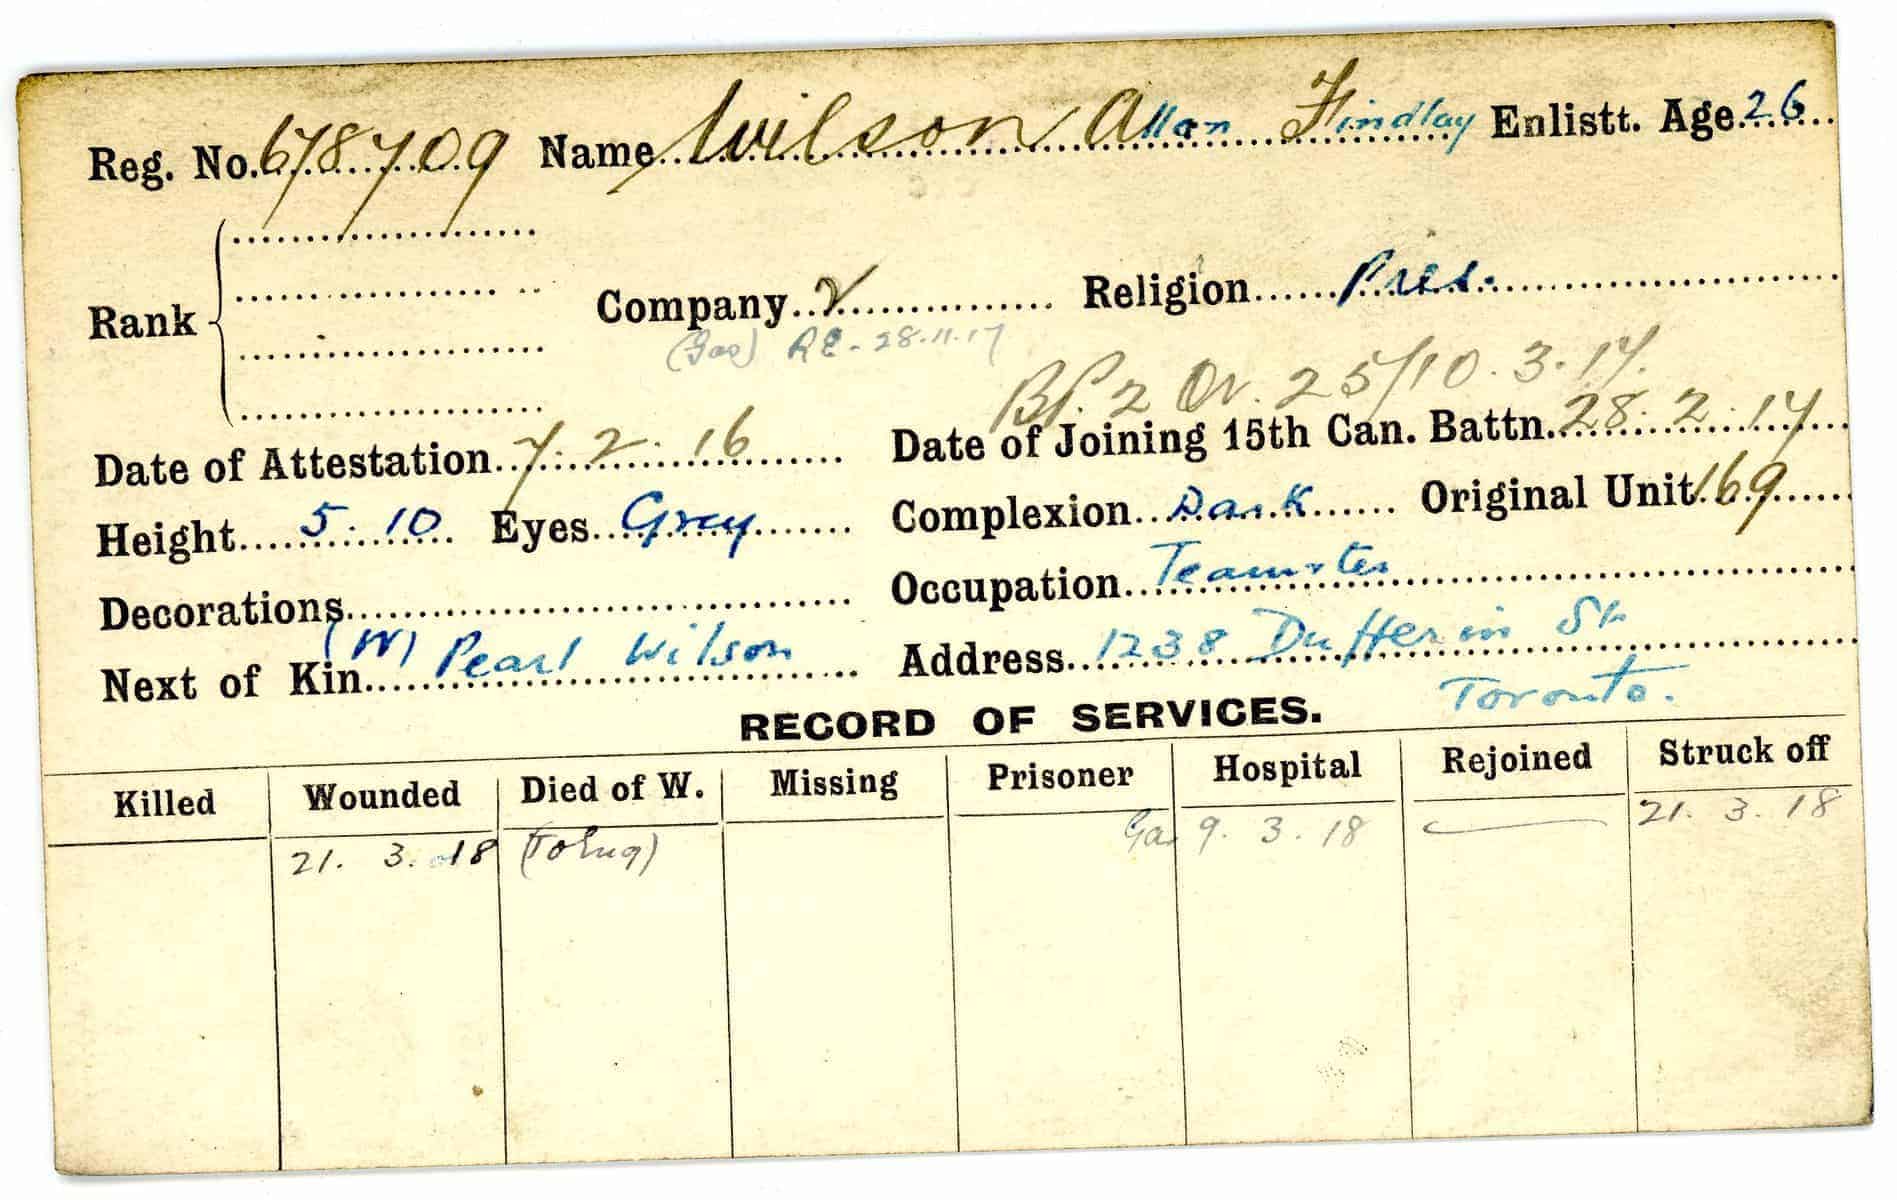 Reg. No. 678709 Name Wilson Allan Findlay Enlistt. Age 26
Rank Company 2 Religion Pres.
(Gas) RE - 28.11.17
Bf. 2 Or. 25/10.3.17.
Date of Attestation 7.2.16 Date of Joining 15th Can. Battn. 28.2.17
Height 5.10 Eyes Grey Complexion Dark Original Unit 169
Decorations Occupation Teamster
Next of Kin (W) Pearl Wilson Address 1238 Dufferin St
Toronto.
RECORD OF SERVICES.
Killed Wounded Died of W. Missing Prisoner Hospital Rejoined Struck off
21. 3. 18 (To Eng) Gas 9. 3. 18 21. 3. 18